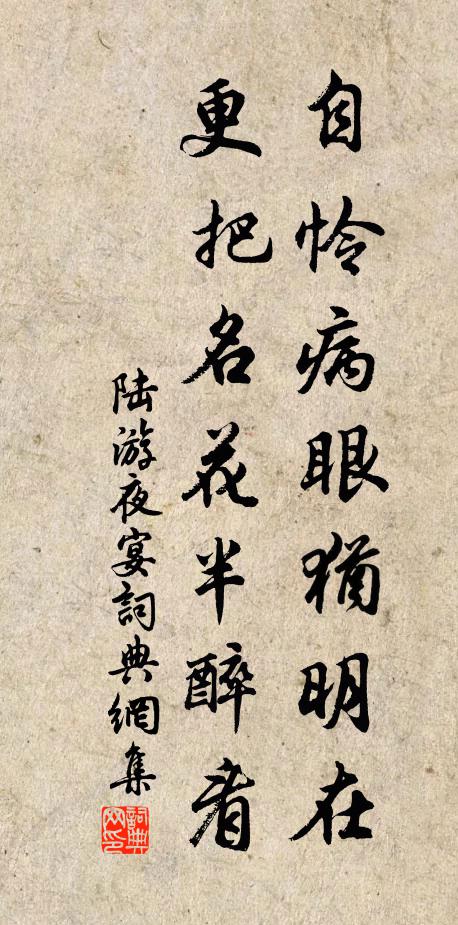 自怜病眼猶明在
更把名花半醉看
陆游夜宴詞典網集
詞典
网印